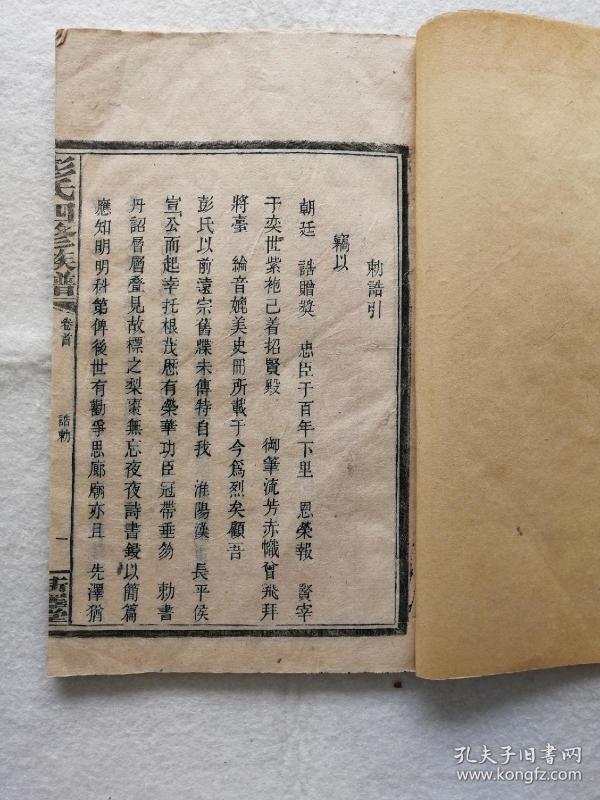 勅誥引
竊以
朝廷 誥贈奬 忠臣于百年下里 恩榮報 賢宰
于奕世紫袍已着招賢殿 御筆流芳赤幟曾飛拜
將臺 綸音媲美史冊所載于今爲烈矣顧吾
彭氏以前遠宗舊牒未傳特自我 淮陽漢 長平侯
宣公而起幸托根茂慰有榮華功臣冠帶垂笏 勅書
丹詔層層疊見故標之梨棗無忘夜夜詩書鋟以簡篇
應知明明科第俾後世有勸爭思廊廟亦且 先澤猶
彭氏四修族譜
卷首
誥勅
一
孔夫子旧书网
www.kongfz.com